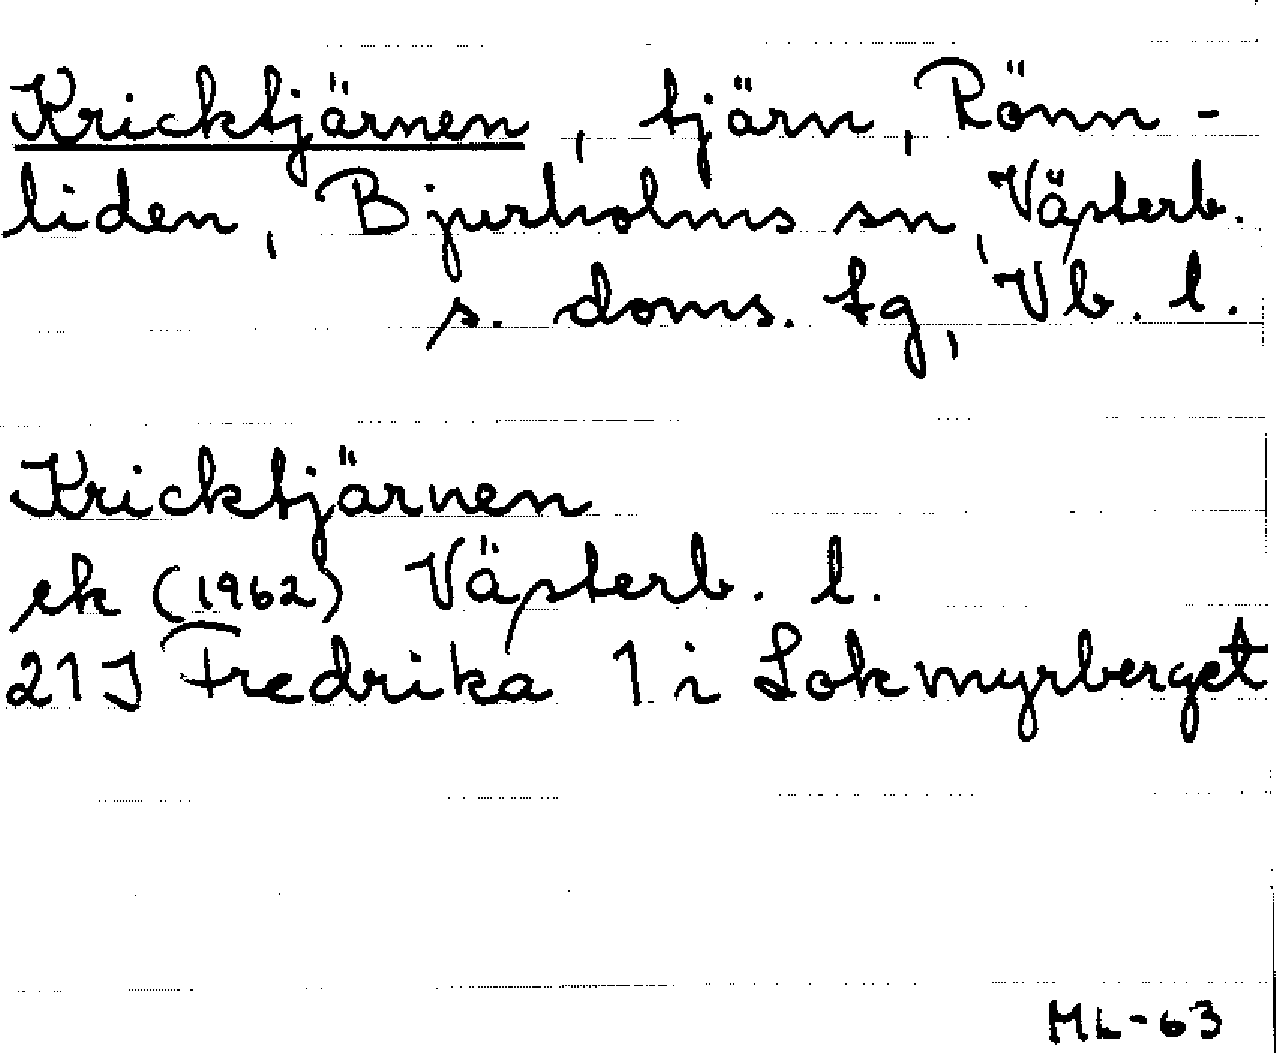 Kricktjärnen, tjärn, Rönn-
liden, Bjurholms sn, Västerb.
s. doms. tg, Vb. l.
Kricktjärnen
ek (1962) Västerb. l.
21J Fredrika 1 i Lokmyrberget
ML-63